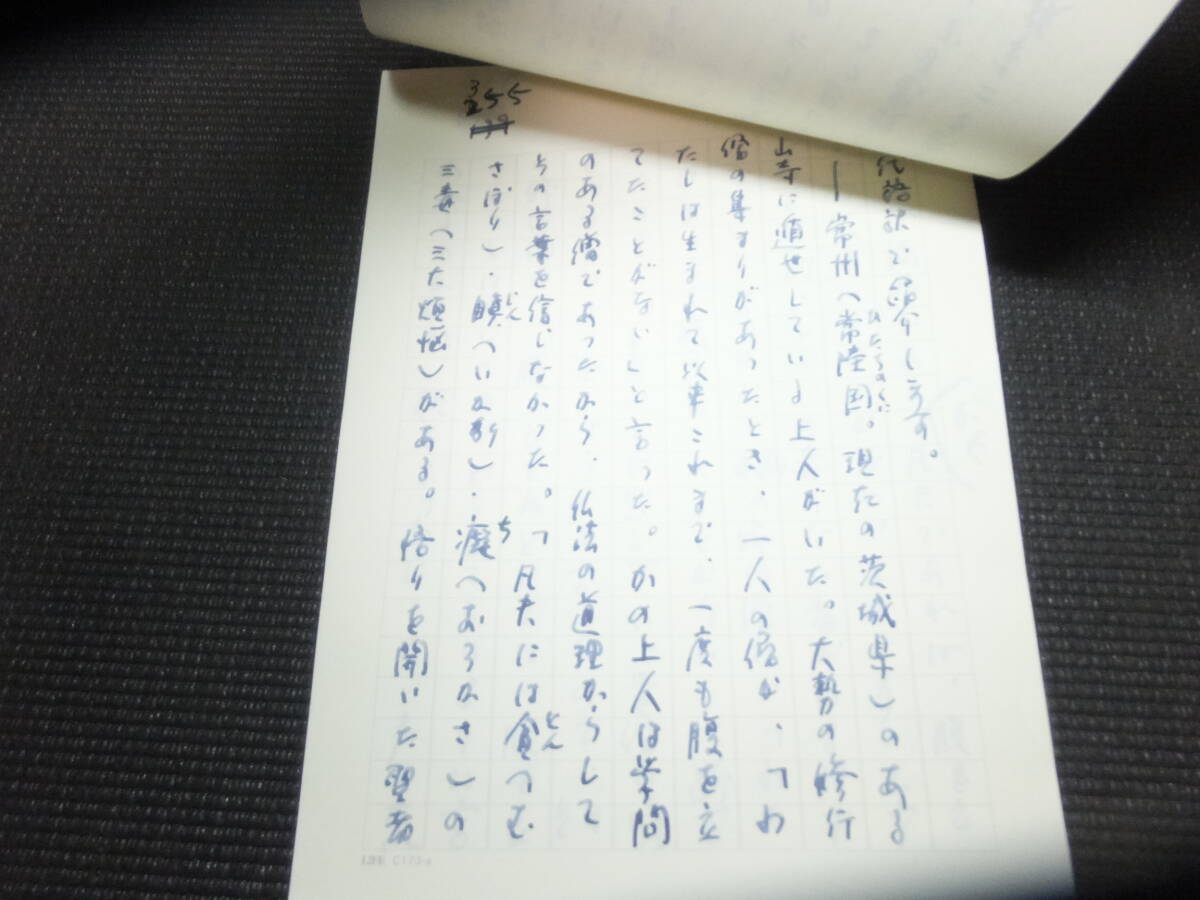 代語訳で紹介します。
──常州(常陸国。現在の茨城県)のある
ひたちのくに
山寺に遁世している上人がいた。大勢の修行
僧の集まりがあったとき、一人の僧が、「わ
たしは生まれて以来これまで、一度も腹を立
てたことがない」と言った。かの上人は学問
のある僧であったから、仏法の道理からして
その言葉を信じなかった。「凡夫には貪(む
とん
さぼり)・瞋(いかり)・癡(おろかさ)の
じん
ち
三毒(三大煩悩)がある。悟りを開いた聖者
355
139
LIFE C175-a